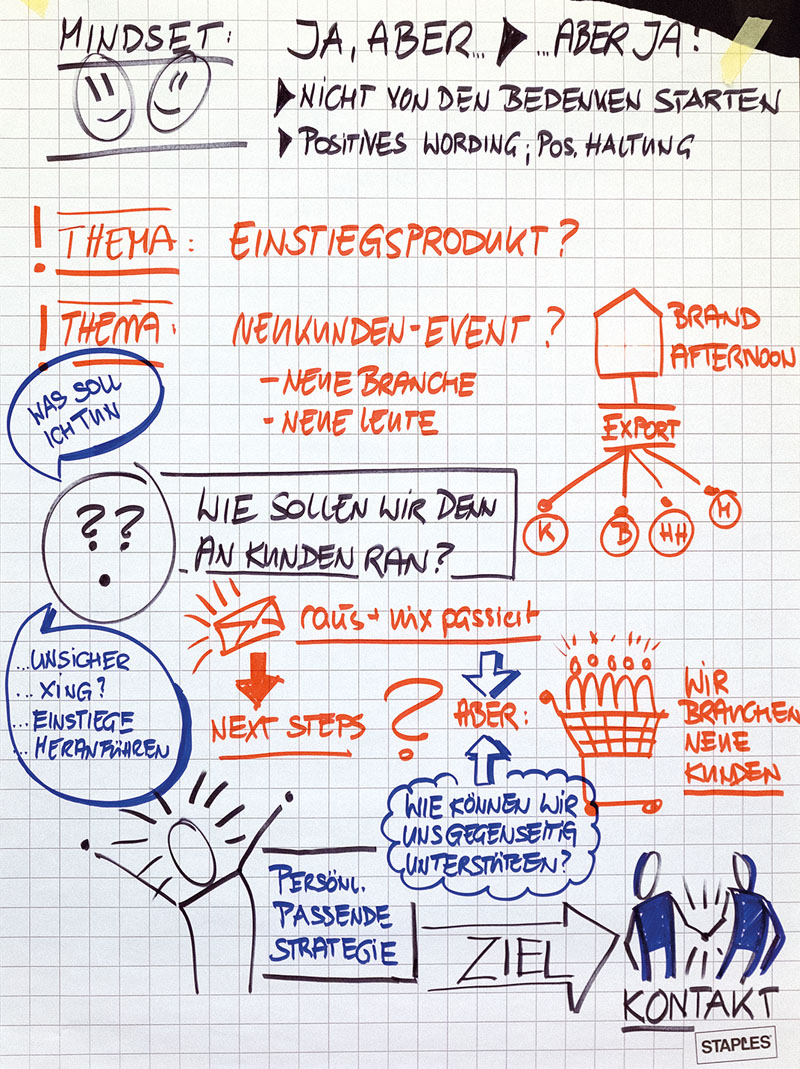 MINDSET:
JA, ABER... ▶ ...ABER JA!
▶ NICHT VON DEN BEDENKEN STARTEN
▶ POSITIVES WORDING; POS. HALTUNG
! THEMA: EINSTIEGSPRODUKT?
! THEMA: NEUKUNDEN-EVENT?
- NEUE BRANCHE
- NEUE LEUTE
BRAND
AFTERNOON
EXPORT
K B HH M
WAS SOLL
ICH TUN
??
WIE SOLLEN WIR DENN
AN KUNDEN RAN?
raus + nix passiert
...UNSICHER
...XING?
...EINSTIEGE
...HERANFÜHREN
NEXT STEPS ?
ABER:
WIR
BRAUCHEN
NEUE
KUNDEN
WIE KÖNNEN WIR
UNS GEGENSEITIG
UNTERSTÜTZEN?
PERSÖNL.
PASSENDE
STRATEGIE
ZIEL
KONTAKT
STAPLES